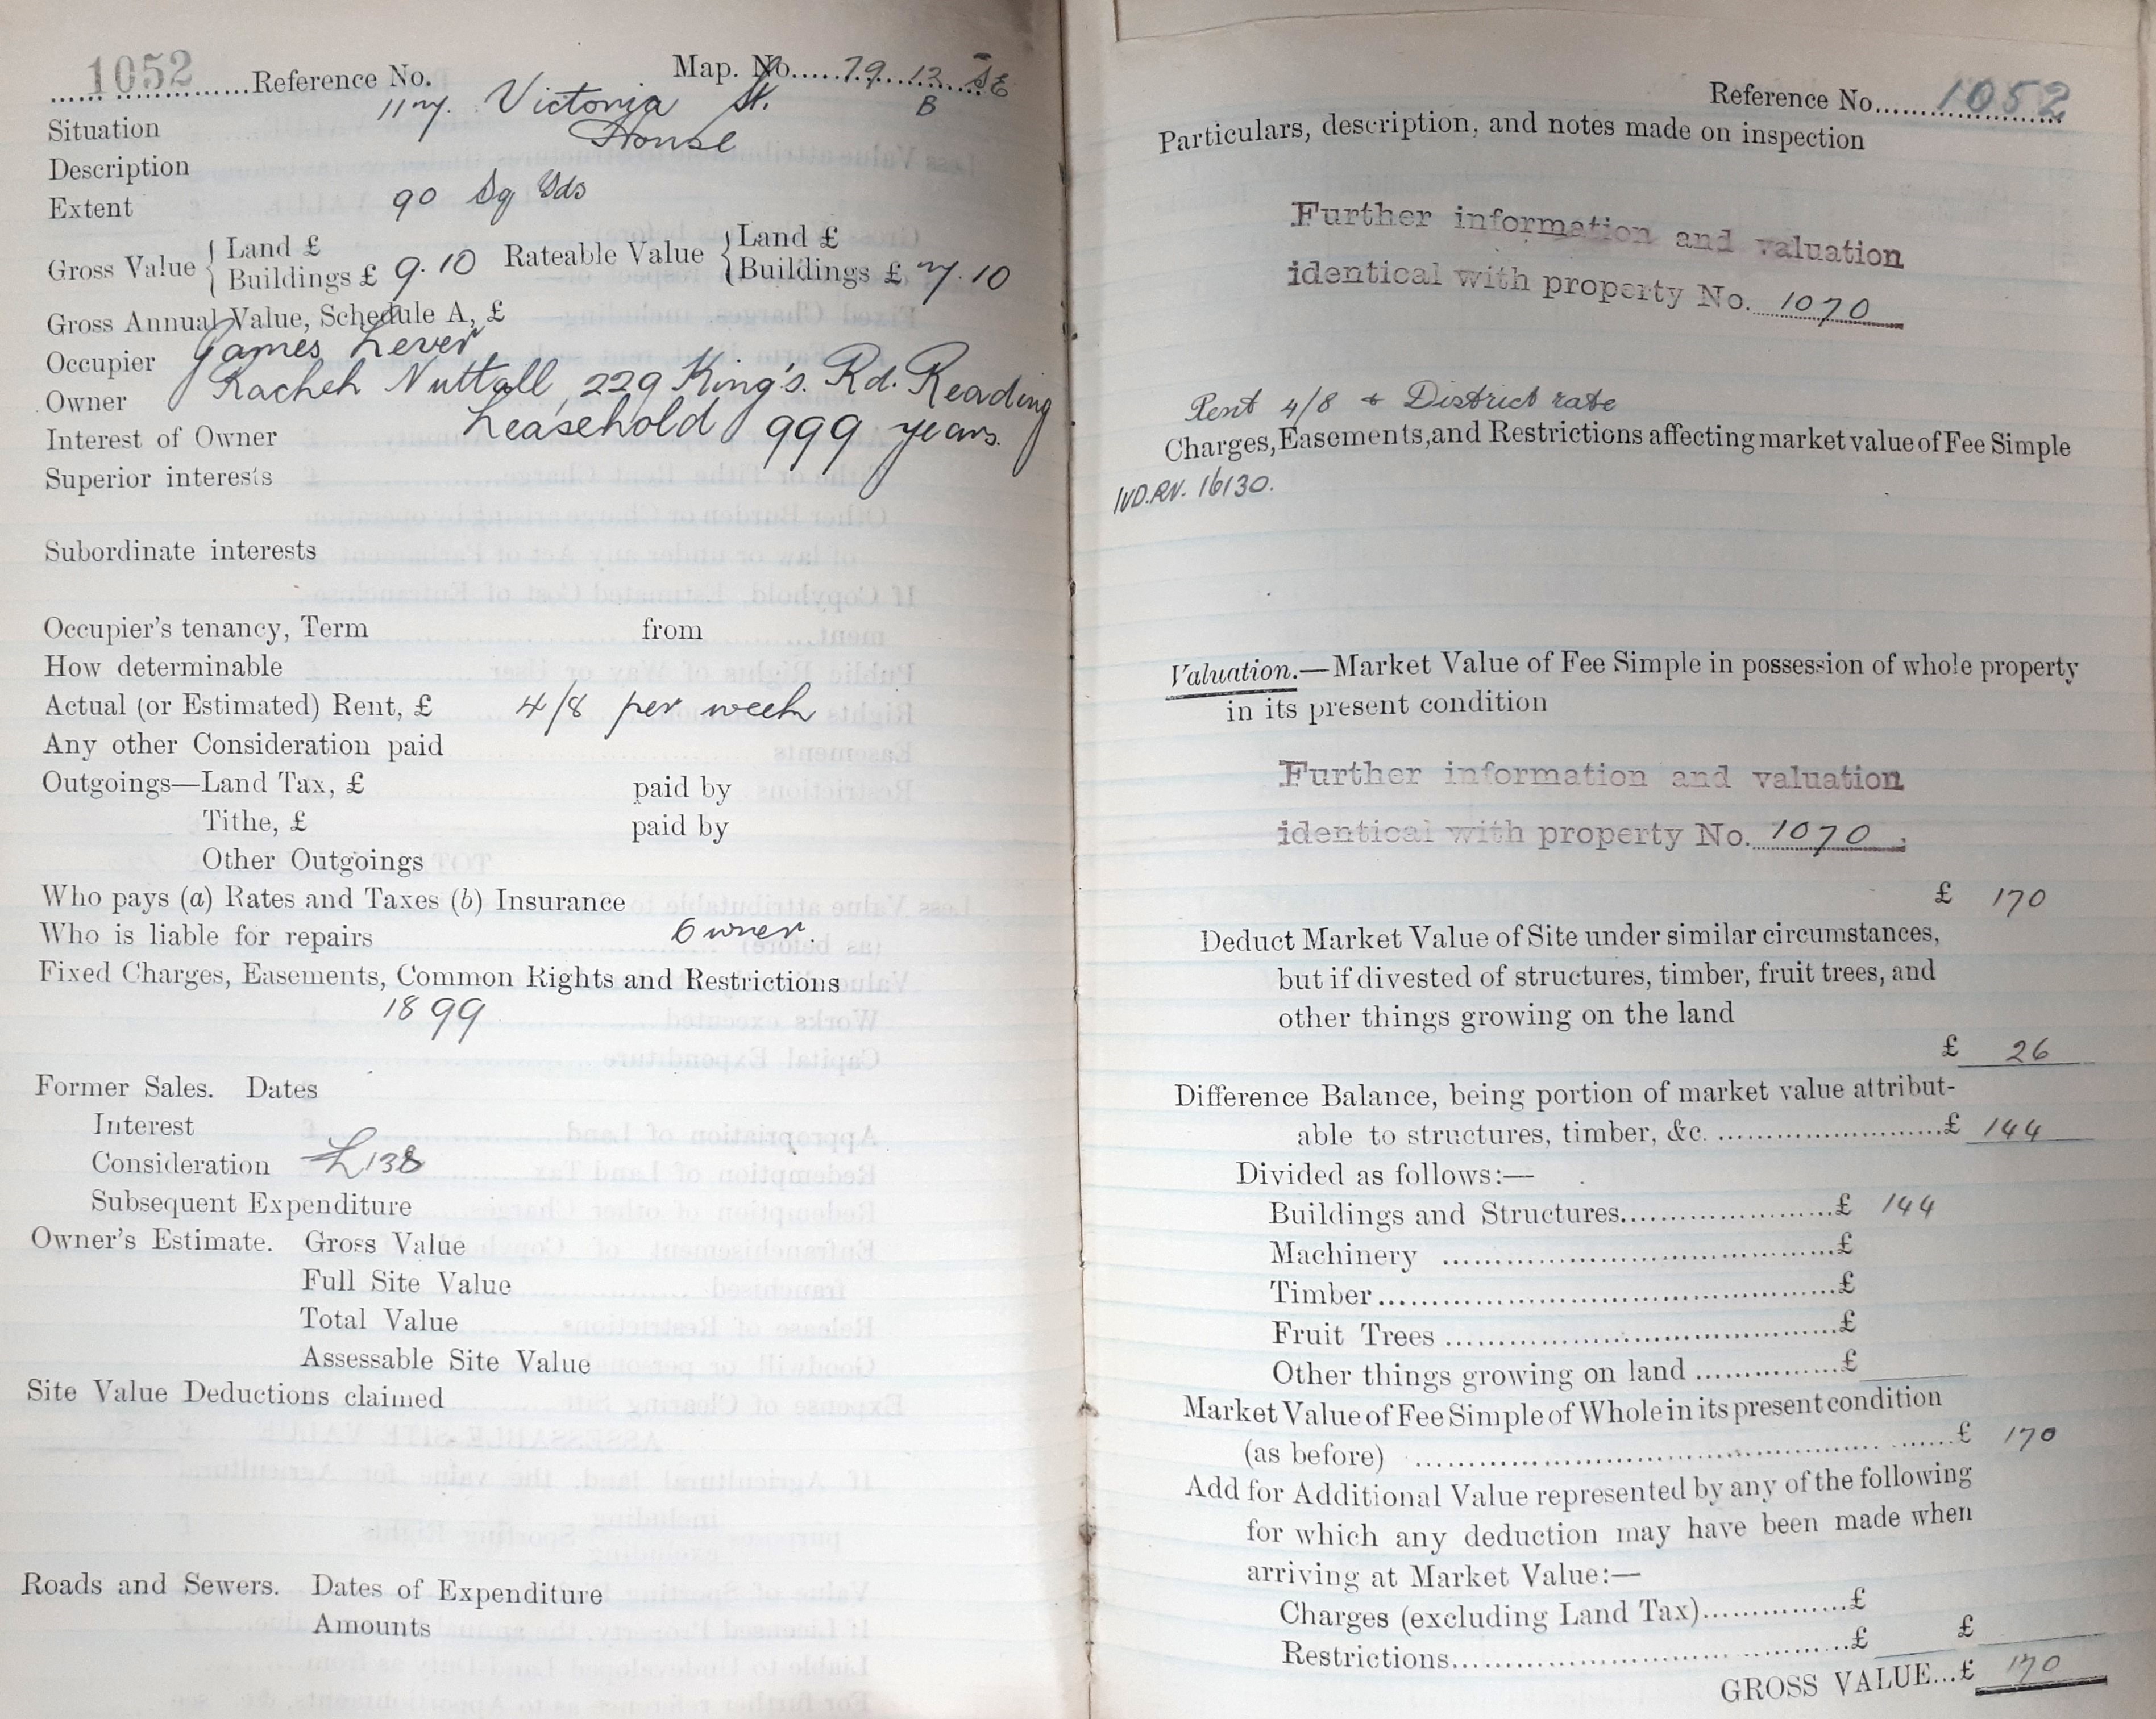 1052 Reference No. Map. No. 79. 12. SE
B
Situation 117. Victoria St.
Description House
Extent 90 Sq Yds
Gross Value { Land £ Rateable Value { Land £
Buildings £ 9.10 Buildings £ 7.10
Gross Annual Value, Schedule A, £
Occupier James Lever
Owner Rachel Nuttall, 229 King's. Rd. Reading
Interest of Owner Leasehold 999 years.
Superior interests
Subordinate interests
Occupier's tenancy, Term from
How determinable
Actual (or Estimated) Rent, £ 4/8 per week
Any other Consideration paid
Outgoings—Land Tax, £ paid by
Tithe, £ paid by
Other Outgoings
Who pays (a) Rates and Taxes (b) Insurance
Who is liable for repairs Owner.
Fixed Charges, Easements, Common Rights and Restrictions
1899
Former Sales. Dates
Interest
Consideration £138
Subsequent Expenditure
Owner's Estimate. Gross Value
Full Site Value
Total Value
Assessable Site Value
Site Value Deductions claimed
Roads and Sewers. Dates of Expenditure
Amounts
Reference No. 1052
Particulars, description, and notes made on inspection
Further information and valuation
identical with property No. 1070
Rent 4/8 + District rate
Charges, Easements, and Restrictions affecting market value of Fee Simple
IVD.RV. 16130.
Valuation.—Market Value of Fee Simple in possession of whole property
in its present condition
Further information and valuation
identical with property No. 1070.
£ 170
Deduct Market Value of Site under similar circumstances,
but if divested of structures, timber, fruit trees, and
other things growing on the land
£ 26
Difference Balance, being portion of market value attribut-
able to structures, timber, &c. £ 144
Divided as follows:—
Buildings and Structures £ 144
Machinery £
Timber £
Fruit Trees £
Other things growing on land £
Market Value of Fee Simple of Whole in its present condition
(as before) £ 170
Add for Additional Value represented by any of the following
for which any deduction may have been made when
arriving at Market Value:—
Charges (excluding Land Tax) £
Restrictions £ £
GROSS VALUE...£ 170